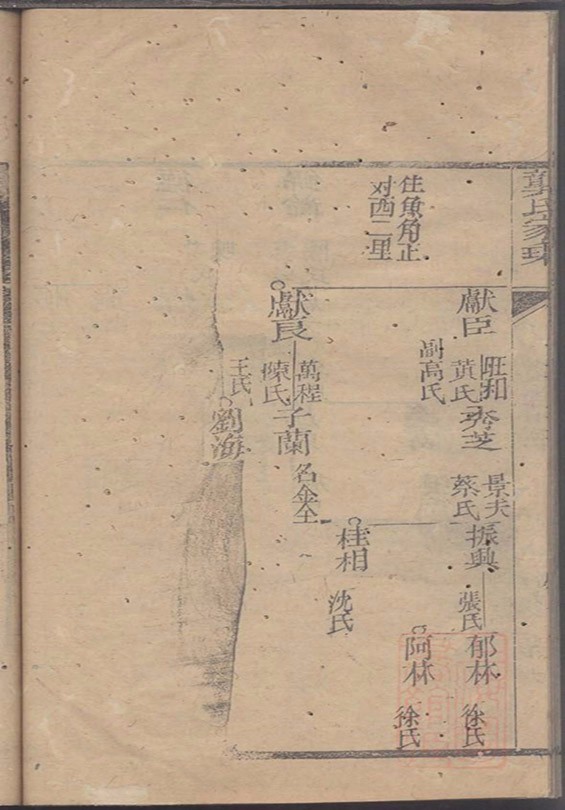 龔氏家
獻臣
旺和
黃氏
副高氏
秀芝
景夫
蔡氏
振興
張氏
郁林
徐氏
阿林
徐氏
住魚角正
对西二里
桂相
沈氏
獻良
萬程
陳氏
王氏
子蘭
名金全
劉海